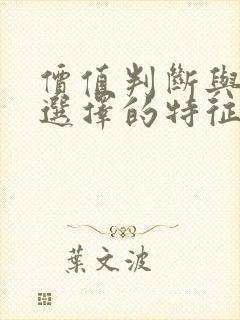 價值判斷與
選擇的特征
葉文波